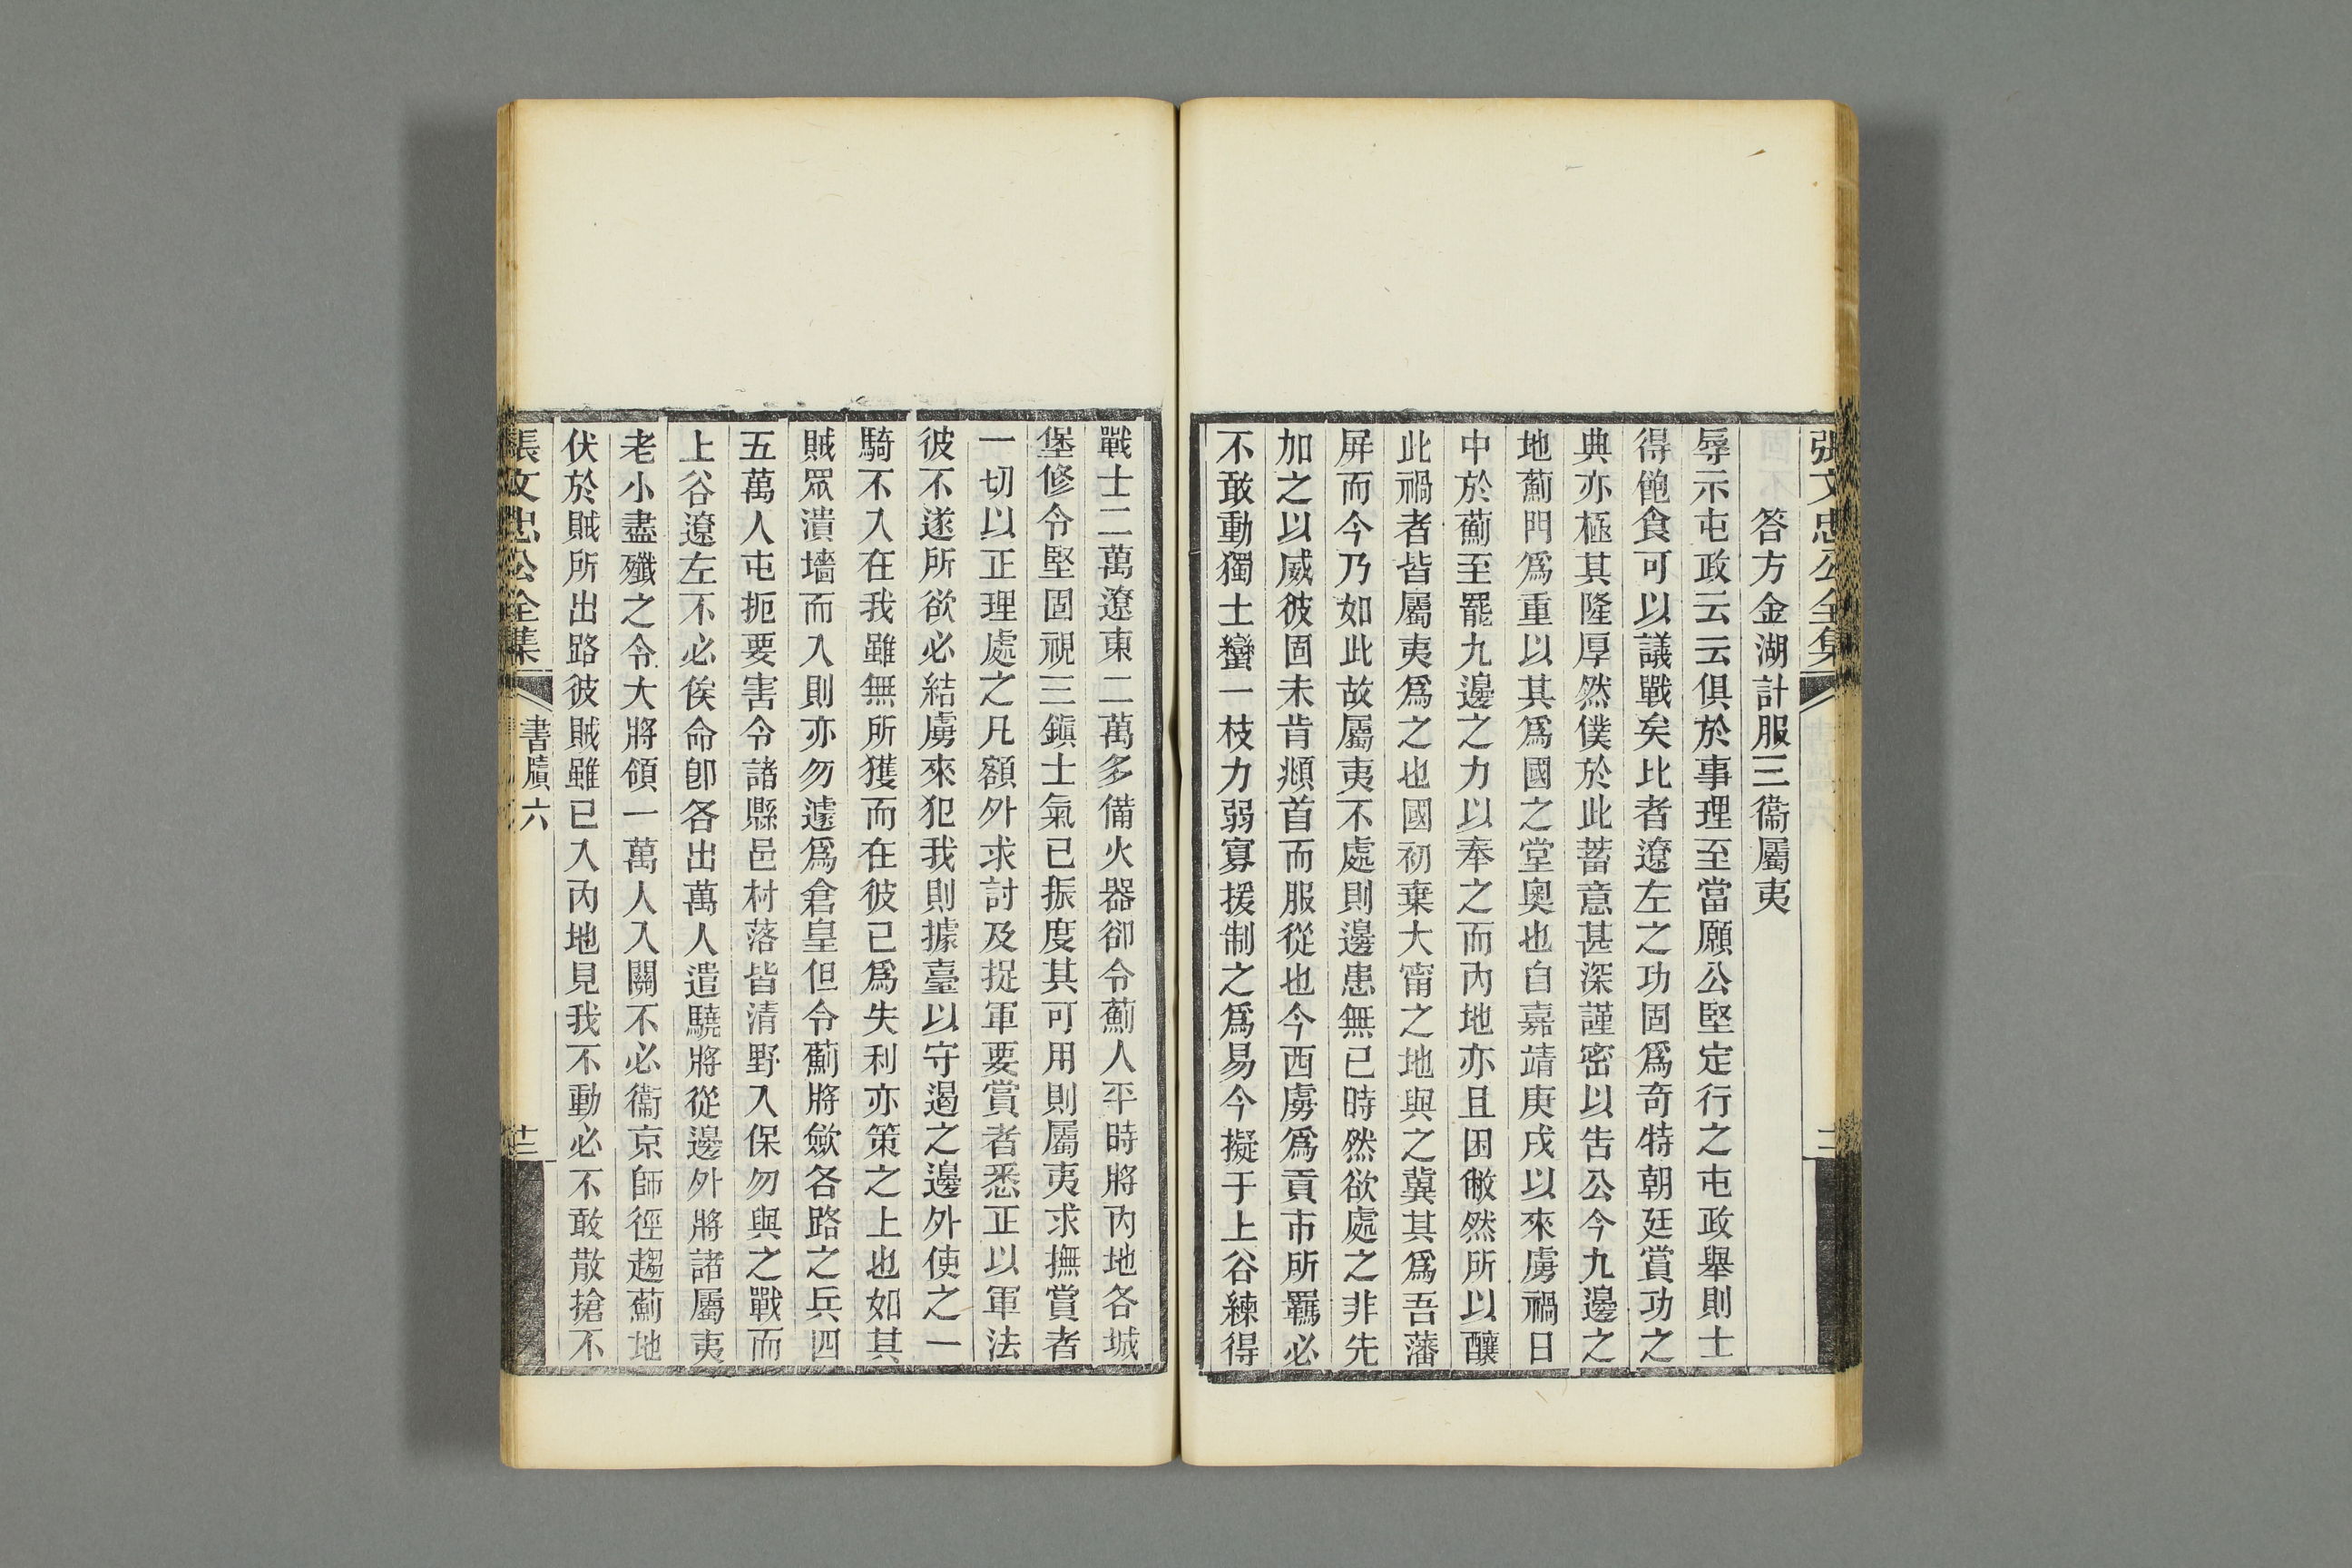 張文忠公全集
答方金湖計服三衞屬夷
辱示屯政云云俱於事理至當願公堅定行之屯政舉則士
得飽食可以議戰矣比者遼左之功固爲奇特朝廷賞功之
典亦極其隆厚然僕於此蓄意甚深謹密以吿公今九邊之
地薊門爲重以其爲國之堂奧也自嘉靖庚戌以來虜禍日
中於薊至罷九邊之力以奉之而內地亦且困敝然所以釀
此禍者皆屬夷爲之也國初棄大甯之地與之冀其爲吾藩
屏而今乃如此故屬夷不處則邊患無已時然欲處之非先
加之以威彼固未肯頫首而服從也今西虜爲貢市所羈必
不敢動獨土蠻一枝力弱寡援制之爲易今擬于上谷練得
戰士二萬遼東二萬多備火器卻令薊人平時將內地各城
堡修令堅固視三鎭士氣已振度其可用則屬夷求撫賞者
一切以正理處之凡額外求討及捉軍要賞者悉正以軍法
彼不遂所欲必結虜來犯我則據臺以守遏之邊外使之一
騎不入在我雖無所獲而在彼已爲失利亦策之上也如其
賊眾潰墻而入則亦勿遽爲倉皇但令薊將歛各路之兵四
五萬人屯扼要害令諸縣邑村落皆清野入保勿與之戰而
上谷遼左不必俟命卽各出萬人遣驍將從邊外將諸屬夷
老小盡殲之令大將領一萬人入關不必衞京師徑趨薊地
伏於賊所出路彼賊雖已入內地見我不動必不敢散搶不
張文忠公全集
書牘六
十二